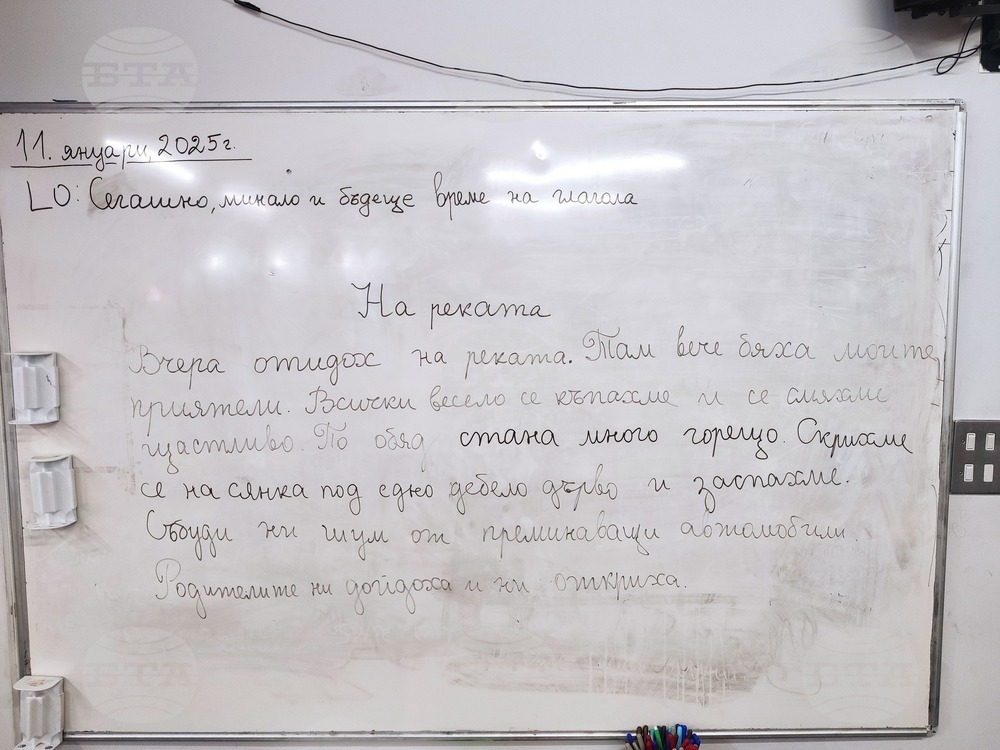 БТА
11. януари, 2025г.
LO: Сегашно, минало и бъдеще време на глагола
На реката
Вчера отидох на реката. Там вече бяха моите
приятели. Всички весело се къпахме и се смяхме
щастливо. По обяд стана много горещо. Скрихме
се на сянка под едно дебело дърво и заспахме.
Събуди ни шум от преминаващи автомобили.
Родителите ни дойдоха и ни откриха.